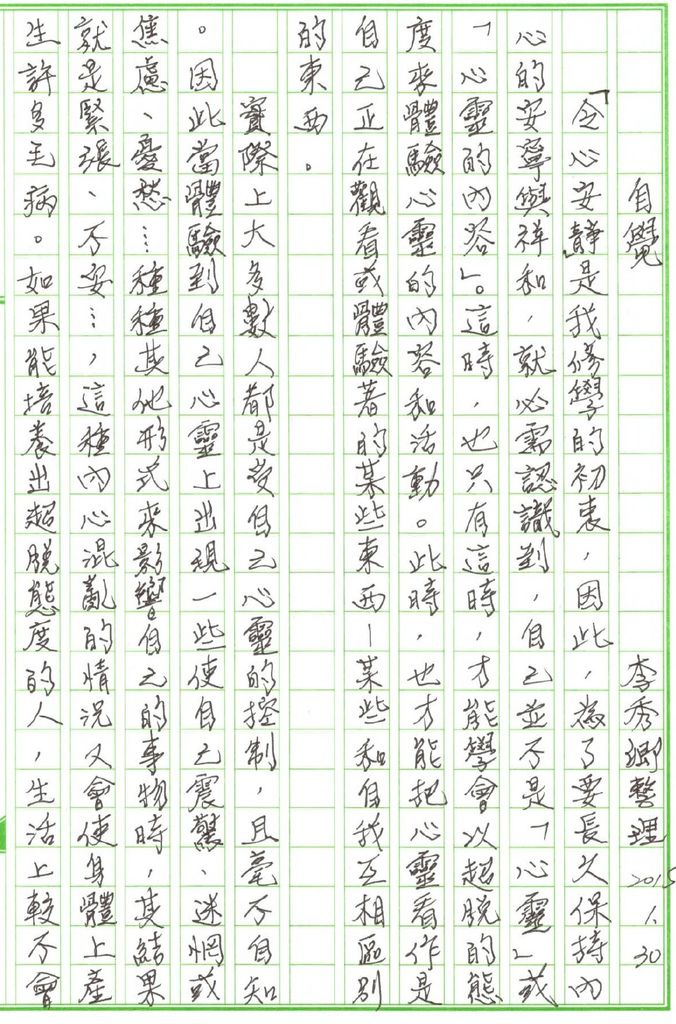 自覺 李秀卿整理 2015.1.30
「令心安靜」是我修學的初衷，因此，為了要長久保持內
心的安寧與祥和，就必需認識到，自己並不是「心靈」或
「心靈的內容」。這時，也只有這時，才能學會以超脫的態
度來體驗心靈的內容和活動。此時，也才能把心靈看作是
自己正在觀看或體驗著的某些東西—某些和自我互相區別
的東西。
實際上大多數人都是受自己心靈的控制，且毫不自知
。因此當體驗到自己心靈上出現一些使自己震驚、迷惘或
焦慮、憂愁…種種其他形式來影響自己的事物時，其結果
就是緊張、不安…，這種內心混亂的情況又會使身體上產
生許多毛病。如果能培養出超脫態度的人，生活上較不會